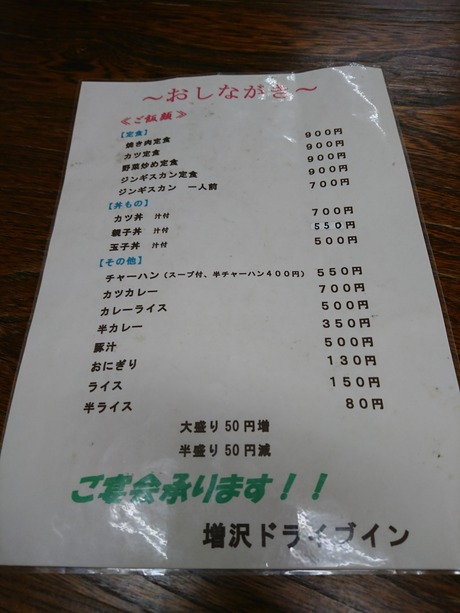 ～おしながき～
≪ご飯類≫
【定食】
焼き肉定食 900円
カツ定食 900円
野菜炒め定食 900円
ジンギスカン定食 900円
ジンギスカン 一人前 700円
【丼もの】
カツ丼 汁付 700円
親子丼 汁付 550円
玉子丼 汁付 500円
【その他】
チャーハン（スープ付、半チャーハン400円） 550円
カツカレー 700円
カレーライス 500円
半カレー 350円
豚汁 500円
おにぎり 130円
ライス 150円
半ライス 80円
大盛り50円増
半盛り50円減
ご宴会承ります！！
増沢ドライブイン